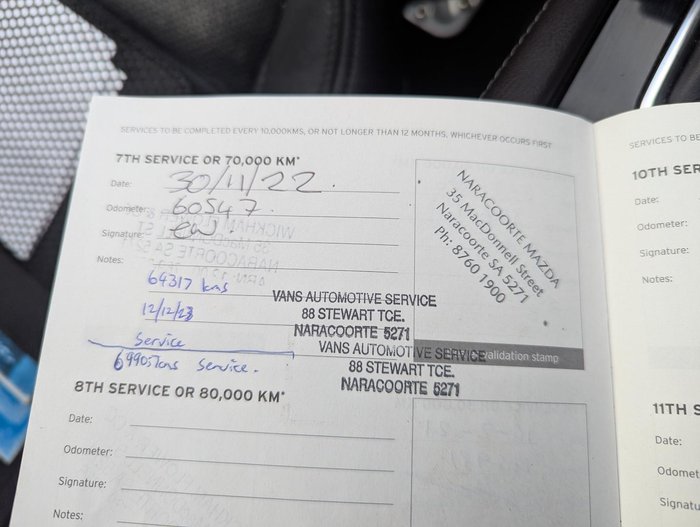 SERVICES TO BE COMPLETED EVERY 10,000KMS, OR NOT LONGER THAN 12 MONTHS, WHICHEVER OCCURS FIRST
7TH SERVICE OR 70,000 KM*
Date: 30/11/22.
Odometer: 60547.
Signature:
Notes:
64317 kms
12/12/23
Service
69905kms Service.
NARACOORTE MAZDA
35 MacDonnell Street
Naracoorte SA 5271
Ph: 8760 1900
validation stamp
VANS AUTOMOTIVE SERVICE
88 STEWART TCE.
NARACOORTE 5271
VANS AUTOMOTIVE SERVICE
88 STEWART TCE.
NARACOORTE 5271
8TH SERVICE OR 80,000 KM*
Date:
Odometer:
Signature:
Notes:
SERVICES TO BE
10TH SER
Date:
Odometer:
Signature:
Notes:
11TH S
Date:
Odomet
Signatu